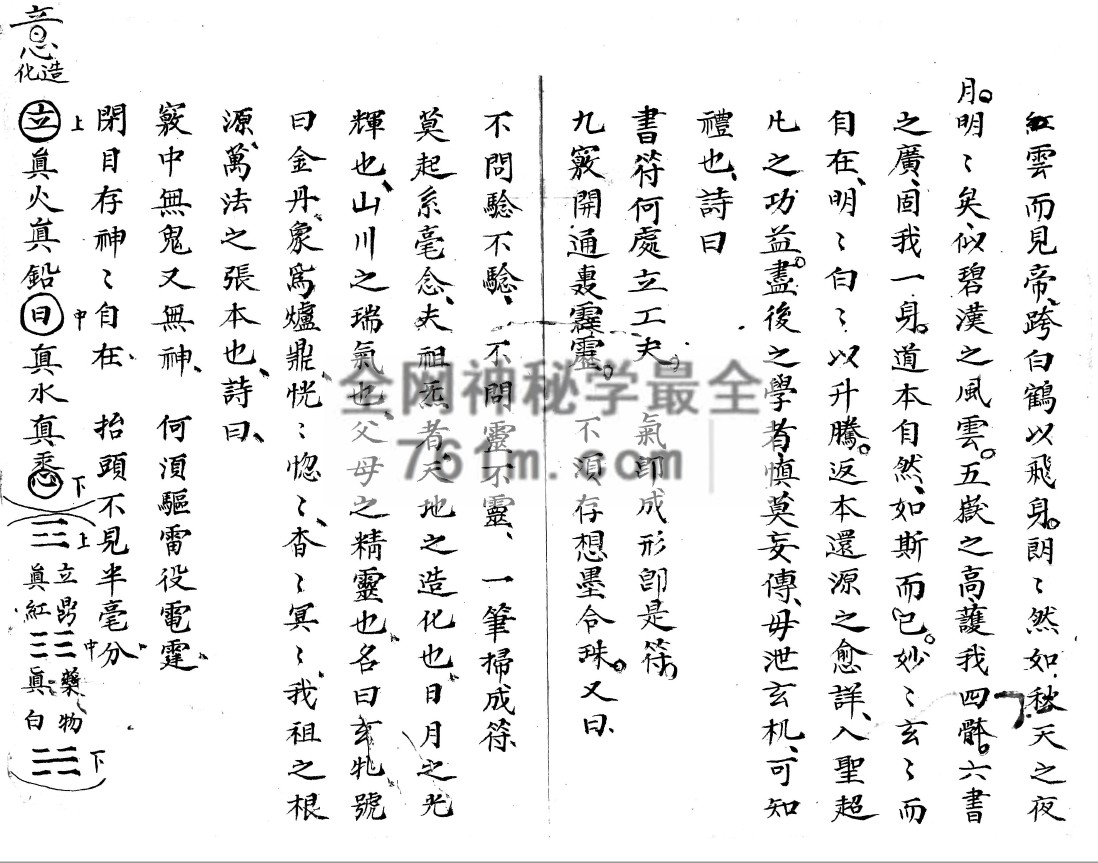 紅雲而見帝、跨白鶴以飛身。朗〻然如秋天之夜
月。明〻矣、似碧漢之風雲。五嶽之高、護我四體。六書
之廣、固我一身。道本自然、如斯而已。妙〻玄〻而
自在、明〻白〻以升騰。返本還源之愈詳、入聖超
凡之功益盡。後之學者、慎莫妄傳、毋泄玄机、可知
禮也、詩曰
書符何處立工夫、氣即成形即是符。
九竅開通轟霹靂。不須存想墨合珠。又曰、
不問驗不驗、不問靈不靈、一筆掃成符、
莫起系毫念、夫祖炁者、天地之造化也、日月之光
輝也、山川之瑞氣也、父母之精靈也、名曰玄牝、號
曰金丹、象爲爐鼎、恍〻惚〻、杳〻冥〻、我祖之根
源、萬法之張本也、詩曰、
竅中無鬼又無神、何須驅雷役電霆、
閉目存神〻自在 抬頭不見半毫分、
立上真火真鉛日中真水真悉下
意
造化
三上立鼎真紅
中藥物真白
下
全网神秘学最全
761m.com